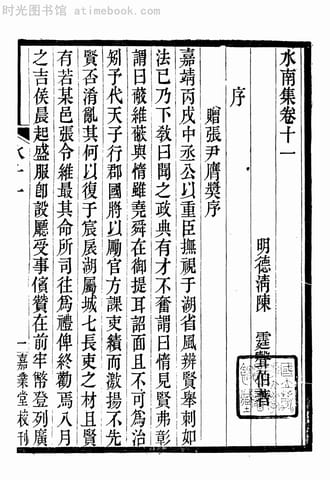 时光图书馆 - atimebook.com
水南集卷十一
明德清陳 霆聲伯著
序
贈張尹膺奬序
嘉靖丙戌中丞公以重臣撫視于湖省風辨賢舉刺如
法已乃下敎曰聞之政典有才不奮謂曰惰見賢弗彰
謂曰蔽維蔽與惰雖堯舜在御提耳詔面且不可為治
矧予代天子行郡國將以勵官方課吏績而激揚不先
賢否淆亂其何以復于宸扆湖屬城七長吏之材且賢
有若某邑張令維最其命所司往為禮俾終勸焉八月
之吉侯晨起盛服卽設廳受事儐贊在前牢幣登列廣
水十一
一
嘉業堂校刊